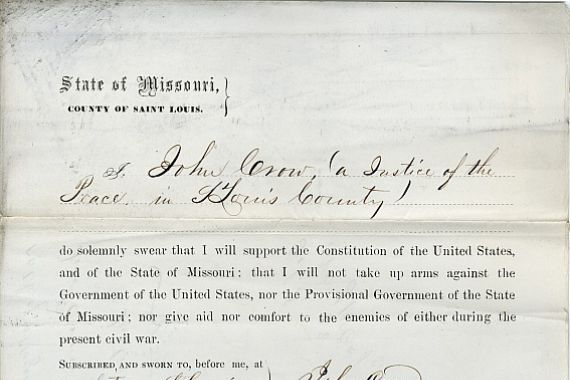 State of Missouri,
COUNTY OF SAINT LOUIS. }
I, John Crow, (a Justice of the
Peace in St Louis County)
do solemnly swear that I will support the Constitution of the United States,
and of the State of Missouri; that I will not take up arms against the
Government of the United States, nor the Provisional Government of the State
of Missouri; nor give aid nor comfort to the enemies of either during the
present civil war.
SUBSCRIBED AND SWORN TO, before me, at }